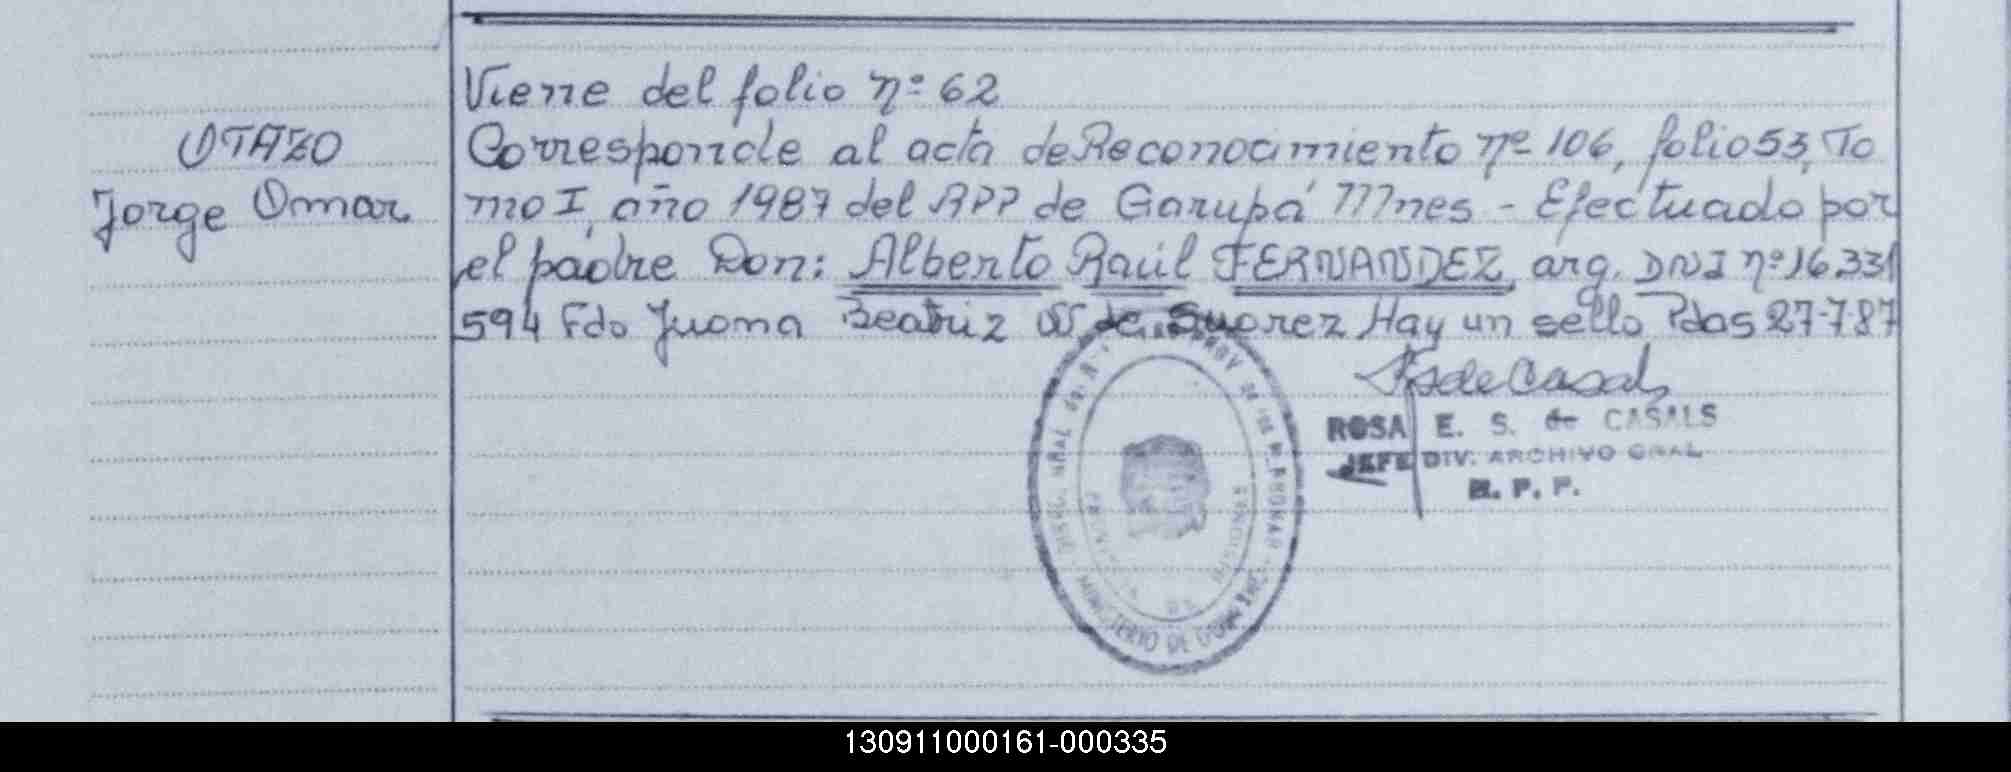 OTAZO
Jorge Omar.
Viene del folio nº 62
Corresponde al acta de Reconocimiento nº 106, folio 53, To
mo I, año 1987 del RPP de Garupá Mnes - Efectuado por
el padre Don: Alberto Raúl FERNANDEZ, arg. DNI nº 16.331
594 Fdo Juana Beatriz de Suarez Hay un sello Pdas 27-7-87
ROSA E. S. de CASALS
JEFE DIV. ARCHIVO GRAL
R. P. P.
MINISTERIO DE
PROVINCIA DE MISIONES
130911000161-000335